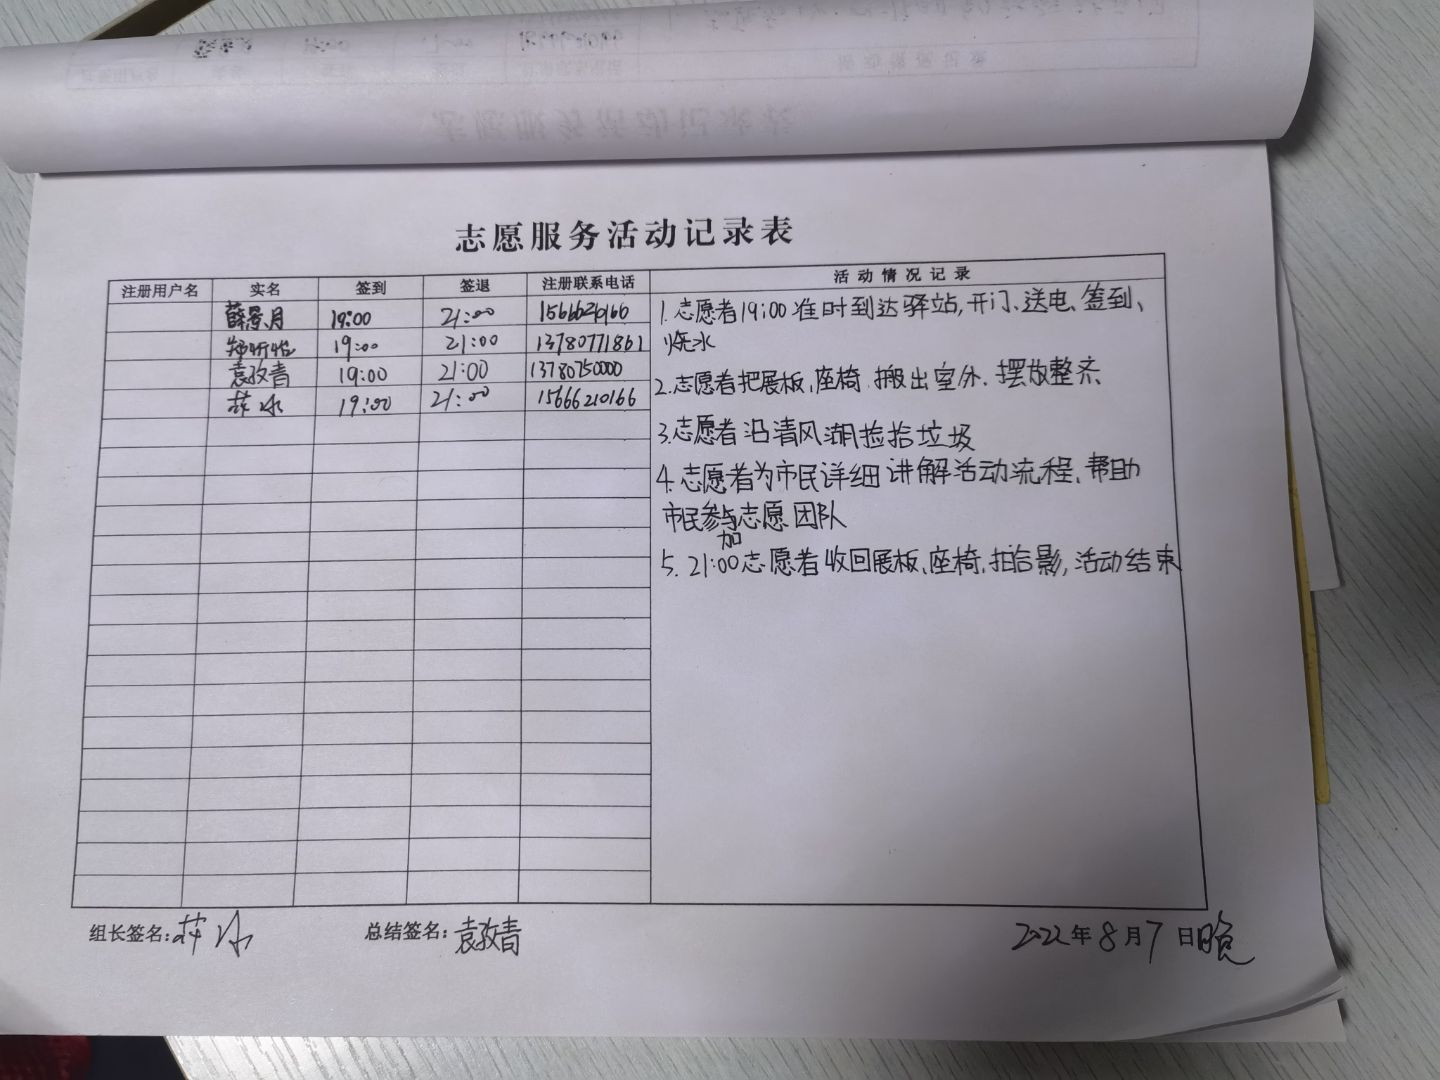 志愿服务活动记录表
注册用户名 实名 签到 签退 注册联系电话 活动情况记录
薛景月 19:00 21:00
19:00 21:00 13780771861
袁孜青 19:00 21:00 13780750000
19:00 21:00 15666210166
1.志愿者19:00准时到达驿站,开门、送电、签到、
烧水
2.志愿者把展板、座椅搬出室外、摆放整齐、
3.志愿者沿清风湖捡拾垃圾
4.志愿者为市民详细讲解活动流程、帮助
市民参与志愿团队
加
5.21:00志愿者收回展板、座椅、拍合影,活动结束
组长签名: 总结签名:袁孜青 2022年8月7日晚